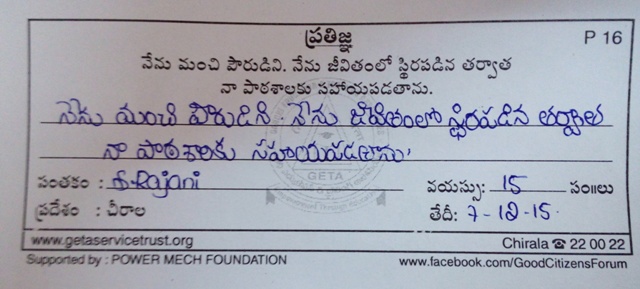 ప్రతిజ్ఞ P 16
నేను మంచి పౌరుడిని. నేను జీవితంలో స్థిరపడిన తర్వాత
నా పాఠశాలకు సహాయపడతాను.
నేను మంచి పౌరుడిని. నేను జీవితంలో స్థిరపడిన తర్వాత
నా పాఠశాలకు సహాయపడతాను.
GETA
సంతకం : S.Rajani వయస్సు: 15 సం॥లు
ప్రదేశం : చీరాల తేదీ: 7-12-15.
www.getaservicetrust.org Chirala ☎ 22 00 22
Supported by : POWER MECH FOUNDATION www.facebook.com/GoodCitizensForum